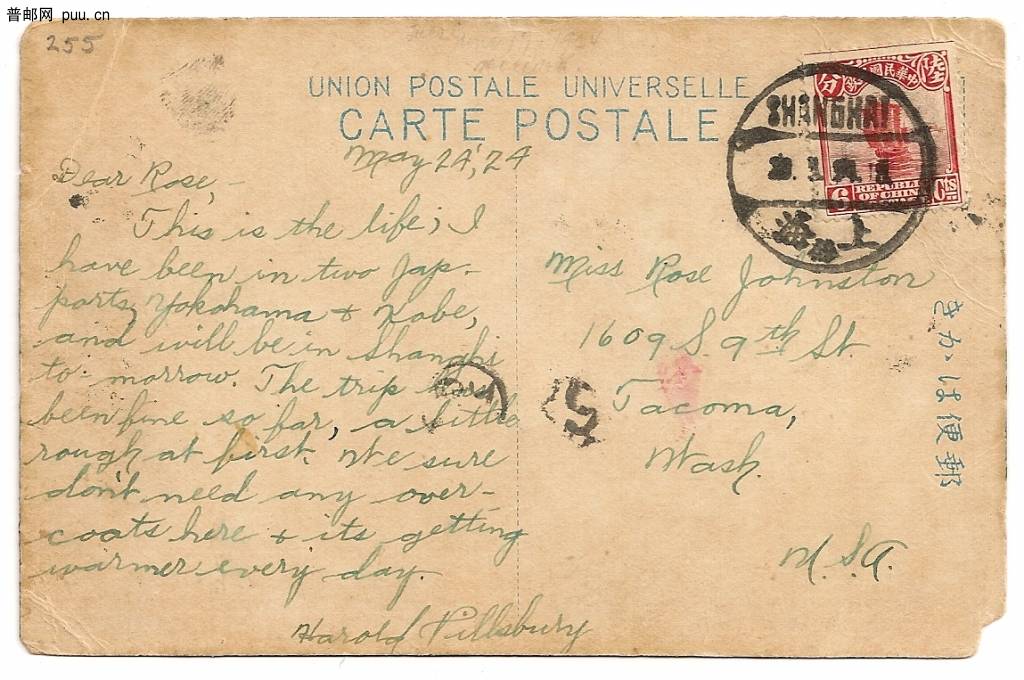 普邮网 puu.cn
255
UNION POSTALE UNIVERSELLE
CARTE POSTALE
SHANGHAI
海上
中華民國
陸
分
6
REPUBLIC
OF CHINA
Cts
May 24, '24
Dear Rose, -
This is the life; I
have been in two Jap.
ports, Yokohama & Kobe,
and will be in Shanghi
to-morrow. The trip has
been fine so far, a little
rough at first. We sure
don't need any over-
coats here & its getting
warmer every day.
Harold Pillsbury
Miss Rose Johnston
1609 S. 9th St.
Tacoma,
Wash.
U.S.A.
きかは便郵
5